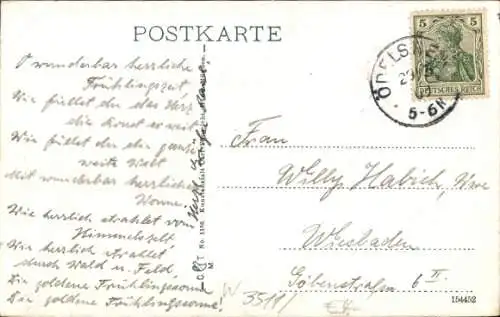 POSTKARTE
O wunderbar herrliche
Frühlingszeit,
Wie füllst du das Herz
die sonst so weit
Wie füllst du die ganze
weite Welt
Mit wunderbar herrlicher
Wonne.
Wie herrlich strahlet vom
Himmelszelt
Wie herrlich strahlet
durch Wald u. Feld,
Die goldene Frühlingssonne
Die goldene Frühlingssonne!
5 5
DEUTSCHES REICH
5-6N
Frau
Willy Habich, Wwe
Wiesbaden
Göbenstraße 6 II.
No. 1156 Kunstanstalt
M
W 3519/
154452